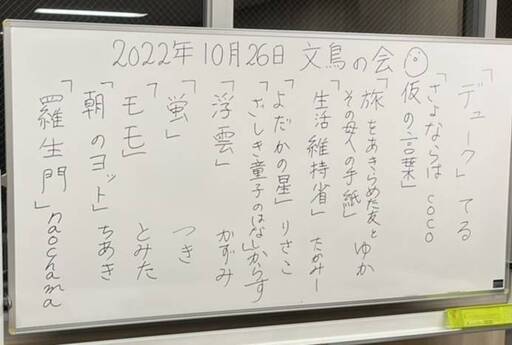 2022年10月26日 文鳥の会
「デューク」 てる
「さよならは
仮の言葉」 coco
「旅をあきらめた友と
その母への手紙」 ゆか
「生活維持省」 たかみー
「よだかの星」 りさこ
「ざしき童子のはなし」からす
「浮雲」 かずみ
「蛍」 つき
「モモ」 とみた
「朝のヨット」 ちあき
「羅生門」 naochama